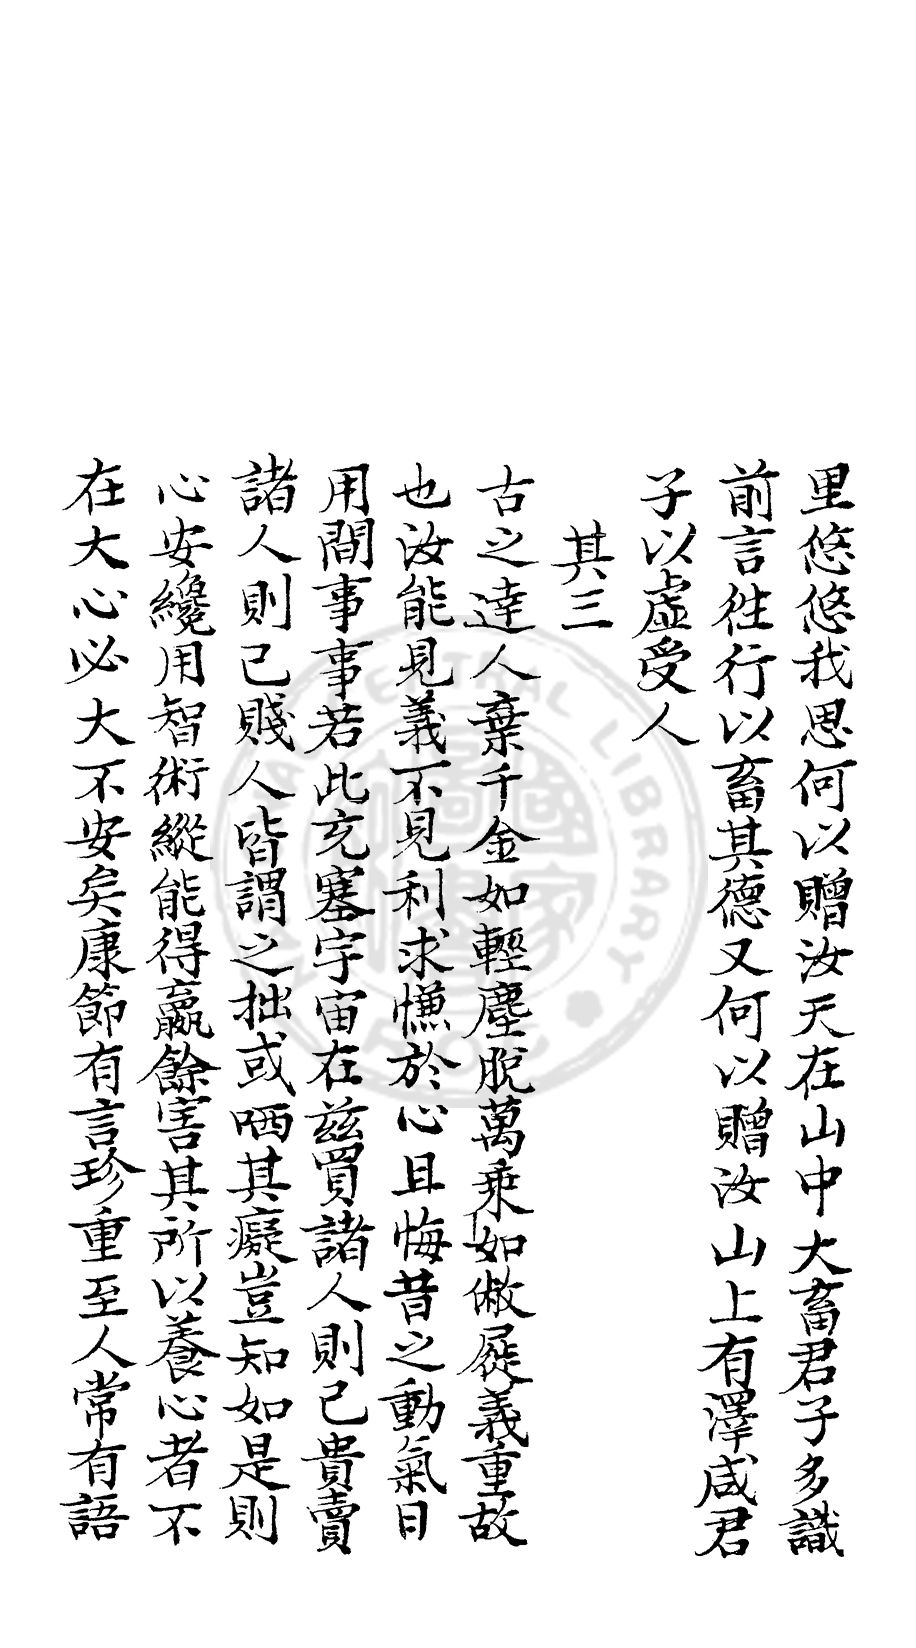 里悠悠我思何以贈汝天在山中大畜君子多識
前言徃行以畜其德又何以贈汝山上有澤咸君
子以虛受人
其三
古之達人棄千金如輕塵脫萬乘如敝屣義重故
也汝能見義不見利求慊於心且悔昔之動氣日
用間事事若此充塞宇宙在茲買諸人則已貴賣
諸人則已賤人皆謂之拙或哂其癡豈知如是則
心安纔用智術縱能得贏餘害其所以養心者不
在大心必大不安矣康節有言珍重至人常有語
CENTRAL LIBRARY